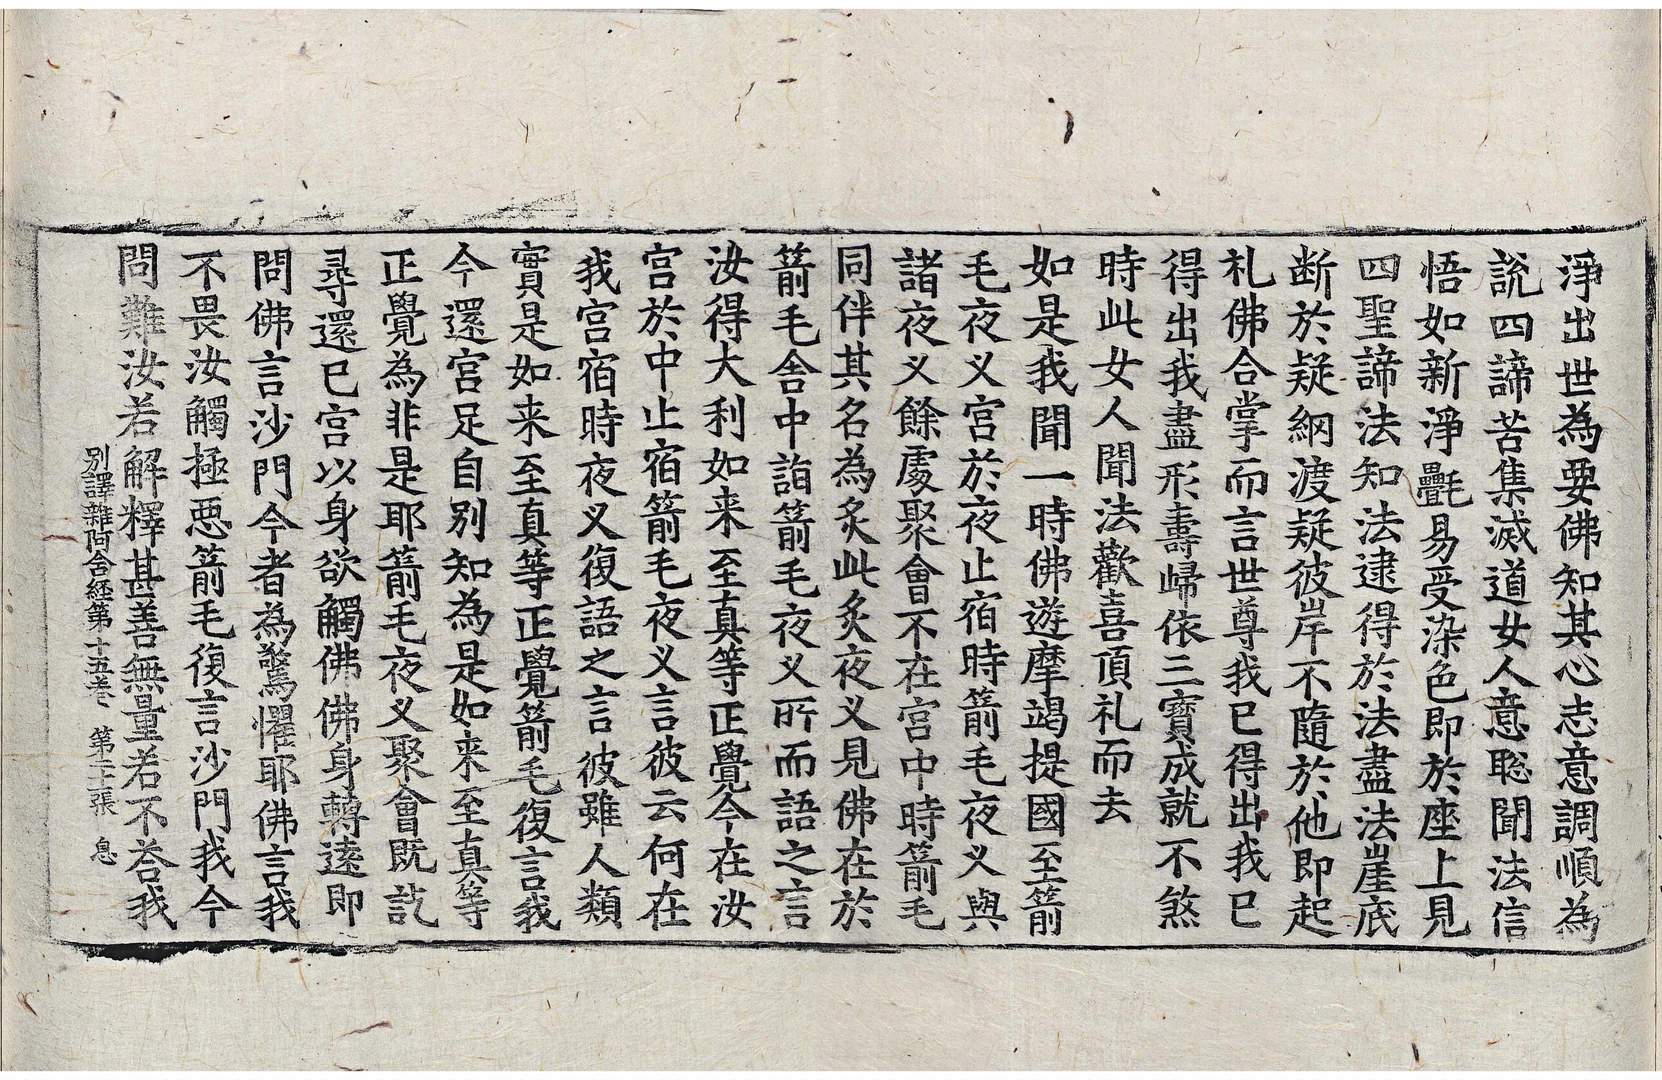 淨出世為要佛知其心志意調順為
說四諦苦集滅道女人意聡聞法信
悟如新淨㲲易受染色即於座上見
四聖諦法知法逮得於法盡法崖底
断於疑網渡疑彼岸不隨於他即起
礼佛合掌而言世尊我已得出我已
得出我盡形壽歸依三寶成就不煞
時此女人聞法歡喜頂礼而去
如是我聞一時佛遊摩竭提國至箭
毛夜义宮於夜止宿時箭毛夜义與
諸夜义餘處聚會不在宮中時箭毛
同伴其名為炙此炙夜义見佛在於
箭毛舍中詣箭毛夜义所而語之言
汝得大利如来至真等正覺今在汝
宮於中止宿箭毛夜义言彼云何在
我宮宿時夜义復語之言彼雖人類
實是如来至真等正覺箭毛復言我
今還宮足自別知為是如来至真等
正覺為非是耶箭毛夜义聚會既訖
尋還已宮以身欲觸佛佛身轉遠即
問佛言沙門今者為驚懼耶佛言我
不畏汝觸極惡箭毛復言沙門我今
問難汝若解釋甚善無量若不荅我
別譯雜阿含経第十五卷 第二十張 息